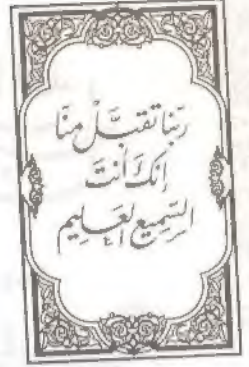 ربنا تقبّل منّا
إنك أنت
السّميع العليم